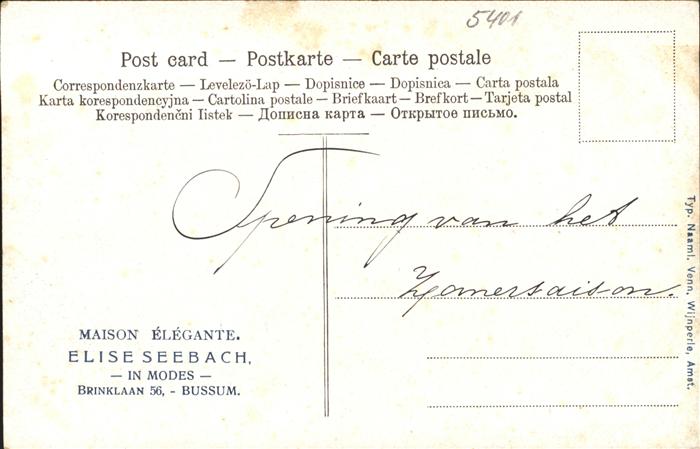 5401
Post card — Postkarte — Carte postale
Correspondenzkarte — Levelező-Lap — Dopisnice — Dopisnica — Carta postala
Karta korespondencyjna — Cartolina postale — Briefkaart — Brefkort — Tarjeta postal
Korespondenční listek — Дописна карта — Открытое письмо.
Opening van het
Zomersaison.
MAISON ÉLÉGANTE.
ELISE SEEBACH,
— IN MODES —
BRINKLAAN 56, - BUSSUM.
Typ. Naaml. Venn. Wijnperle, Amst.